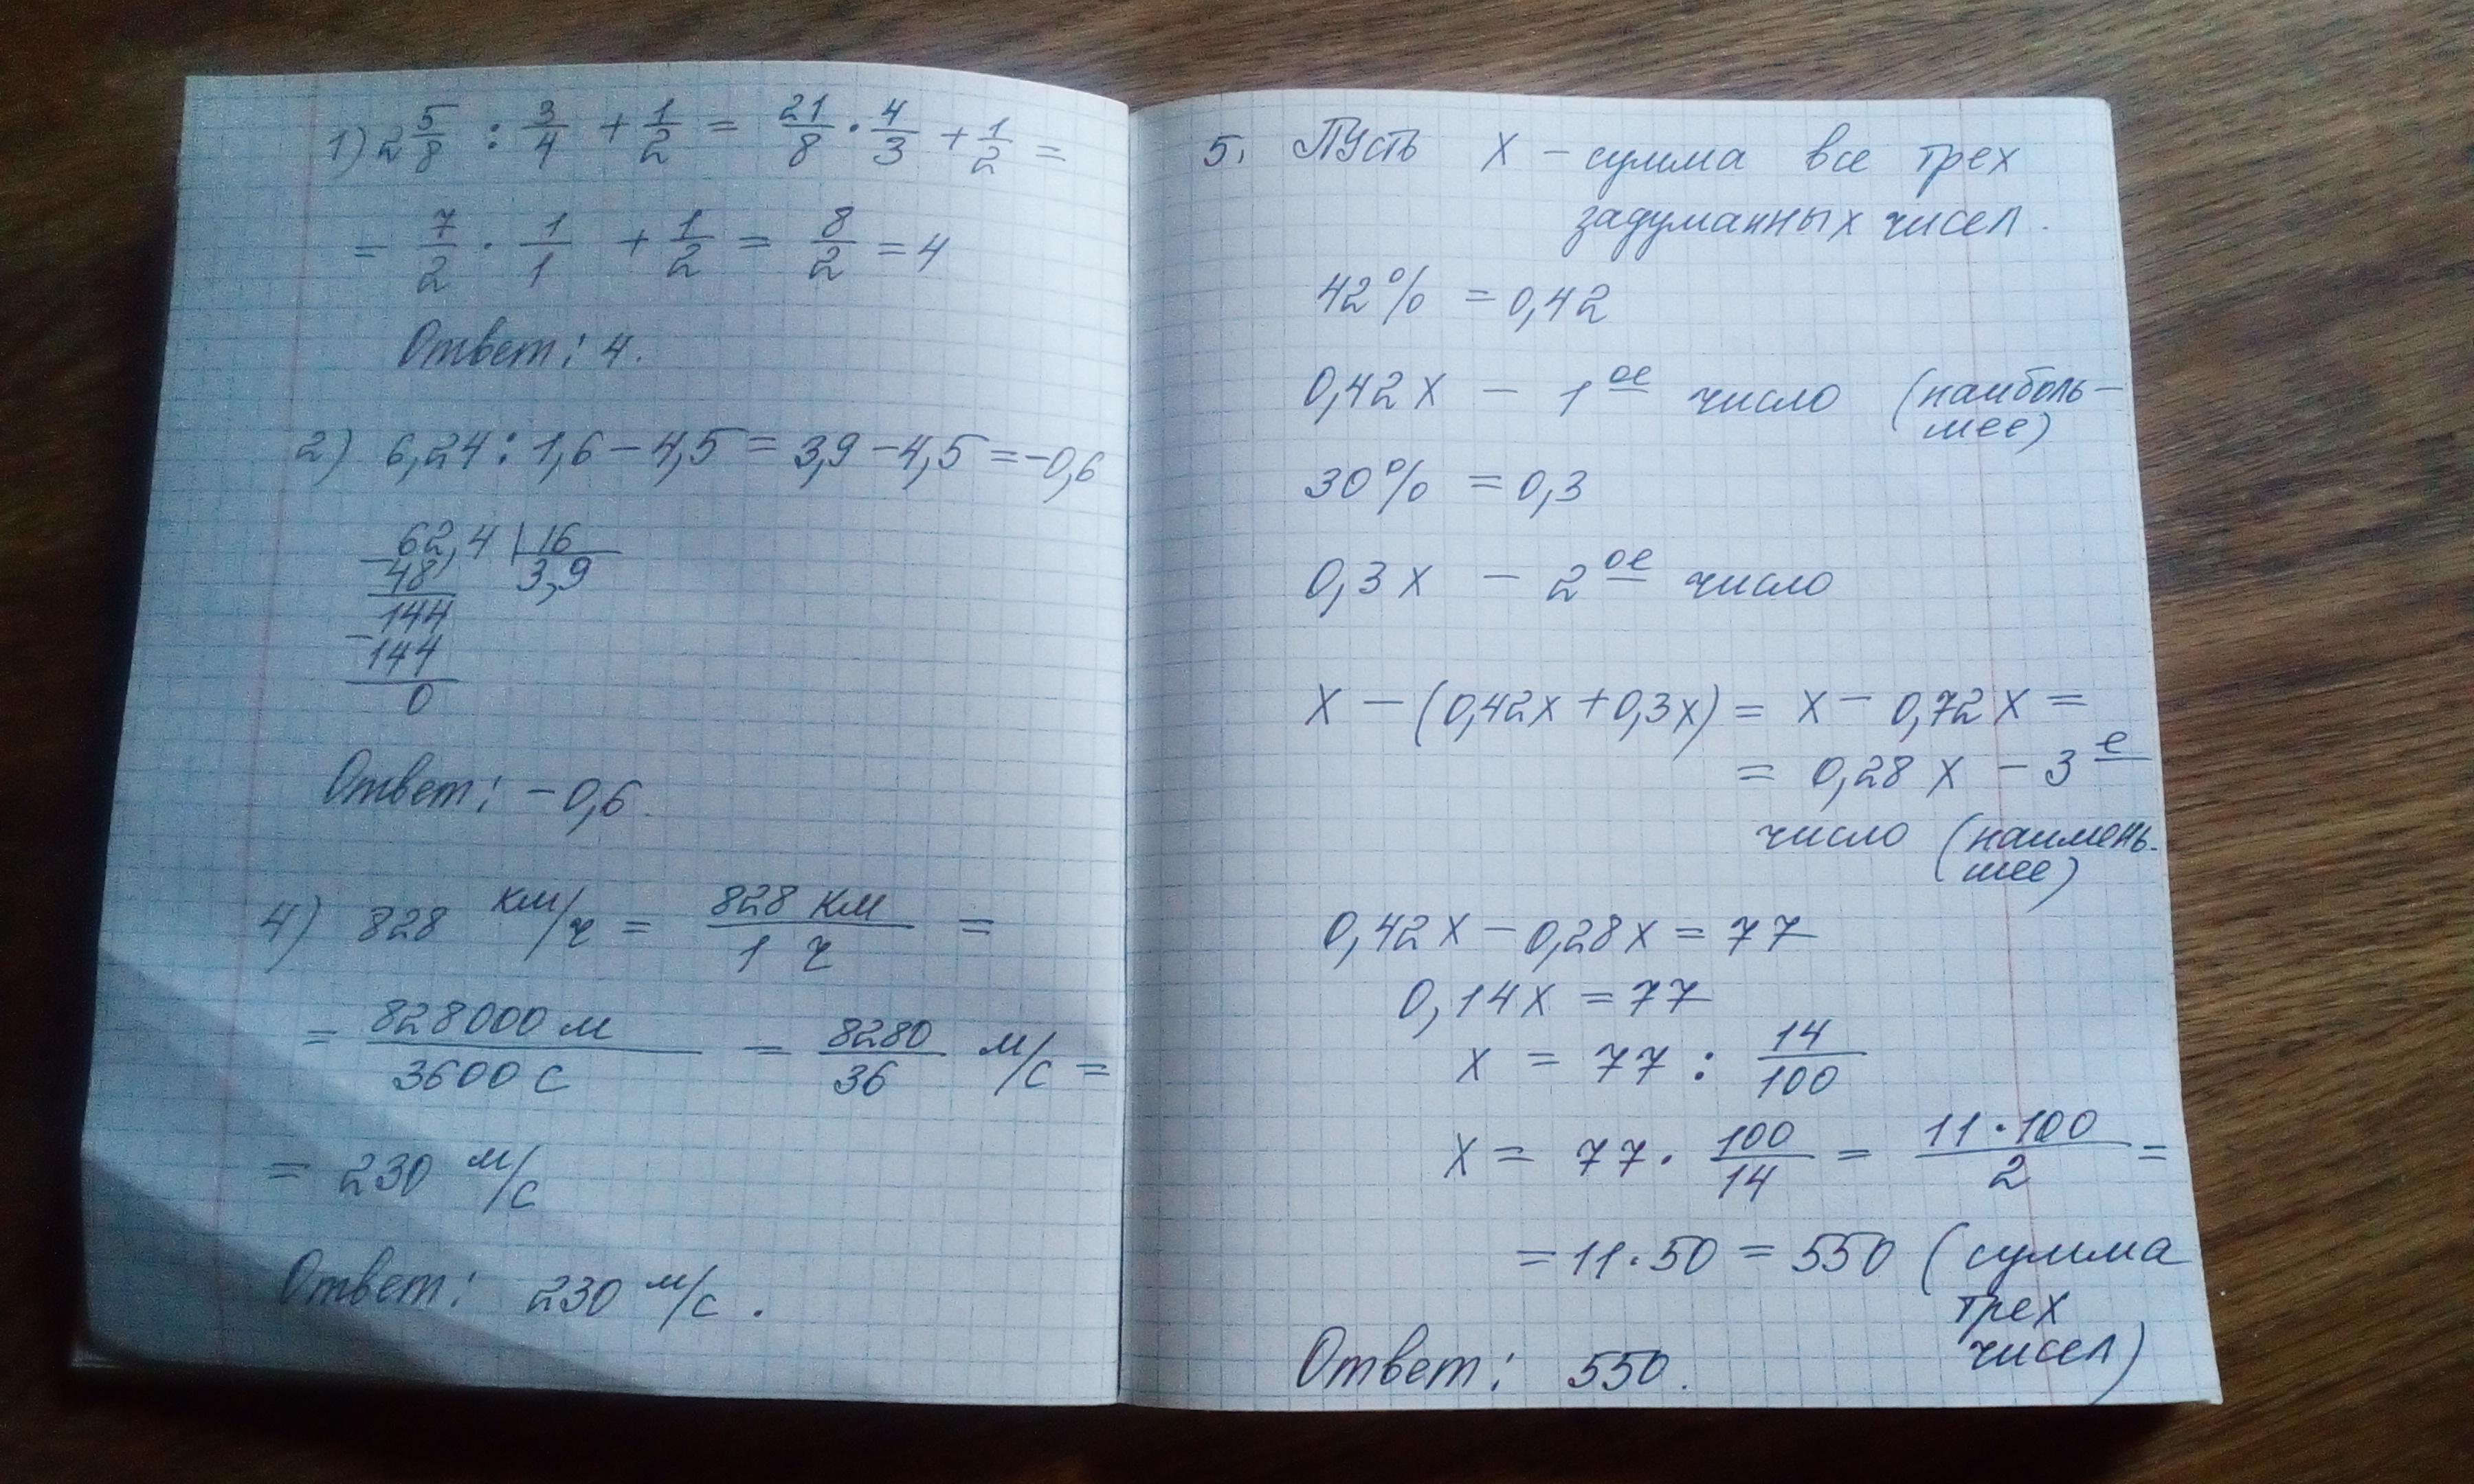 1) 2 5/8 : 3/4 + 1/2 = 21/8 · 4/3 + 1/2 =
= 7/2 · 1/1 + 1/2 = 8/2 = 4
Ответ: 4.
2) 6,24 : 1,6 - 4,5 = 3,9 - 4,5 = -0,6
- 62,4 | 16
48 3,9
144
- 144
0
Ответ: -0,6.
4) 828 км/ч = 828 км / 1 ч =
= 828000 м / 3600 с = 8280/36 м/с =
= 230 м/с
Ответ: 230 м/с.
5. Пусть x - сумма все трех
задуманных чисел.
42% = 0,42
0,42x - 1ое число (наиболь-
шее)
30% = 0,3
0,3x - 2ое число
x - (0,42x + 0,3x) = x - 0,72x =
= 0,28x - 3е
число (наимень-
шее)
0,42x - 0,28x = 77
0,14x = 77
x = 77 : 14/100
x = 77 · 100/14 = 11·100/2 =
= 11·50 = 550 (сумма
трех
чисел)
Ответ: 550.